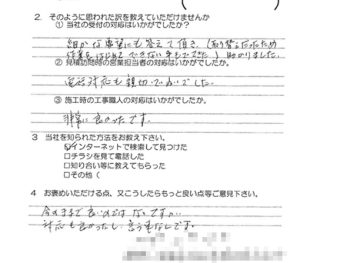 2. そのように思われた訳を教えていただけませんか
① 当社の受付の対応はいかがでしたか?
細かな要望にも答えて頂き、
② 見積訪問時の営業担当者の対応はいかがでしたか。
電話対応も親切で良いでした。
③ 施工時の工事職人の対応はいかがでしたか。
非常に良かったです。
3 当社を知られた方法をお教え下さい。
☑インターネットで検索して見つけた
□チラシを見て電話した
□知り合い等に教えてもらった
□その他(
4 お褒めいただける点、又こうしたらもっと良い点等ご意見下さい。
今のままで良いのではないですか。
対応も良かったし、言う事なしです。